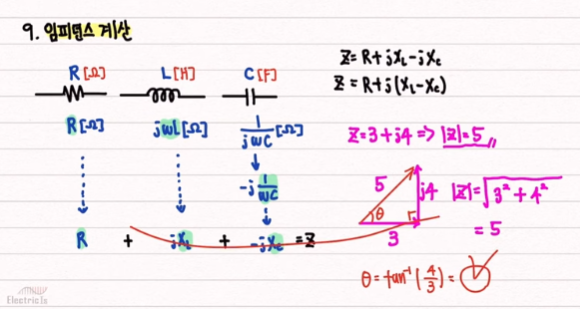 9. 임피던스 계산
R[Ω] L[H] C[F]
R[Ω] jωL[Ω] 1/jωC [Ω]
-j 1/ωC
R + jX_L + -jX_C = Z
Z = R + jX_L - jX_C
Z = R + j(X_L - X_C)
Z = 3 + j4 => |Z| = 5
5 j4 |Z| = √3² + 4²
θ
3 = 5
θ = tan⁻¹(4/3) =
Electric Is